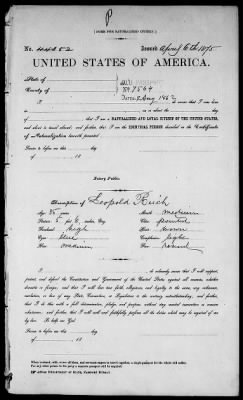 [FORM FOR NATURALIZED CITIZEN.]
No. Issued April 6th 1875
UNITED STATES OF AMERICA.
State of
County of No 7564
I, do swear that I was born
in on or about the day of
; that I am a NATURALIZED AND LOYAL CITIZEN OF THE UNITED STATES,
and about to travel abroad; and further, that I am the IDENTICAL PERSON described in the Certificate
of Naturalization herewith presented.
Sworn to before me, this day
of , 18
Notary Public.
Description of Leopold Reich
Age: 38 years Mouth: medium
Stature: 5 feet 6 inches, Eng. Chin: pointed
Forehead: high Hair: brown
Eyes: blue Complexion: light
Nose: medium Face: round
I, do solemnly swear that I will support,
protect, and defend the Constitution and Government of the United States against all enemies, whether
domestic or foreign; and that I will bear true faith, allegiance, and loyalty to the same, any ordinance,
resolution, or law of any State, Convention, or Legislature to the contrary notwithstanding; and further,
that I do this with a full determination, pledge, and purpose, without any mental reservation or evasion
whatsoever; and further, that I will well and faithfully perform all the duties which may be required of me
by law. So help me God.
Sworn to before me, this day
of , 18